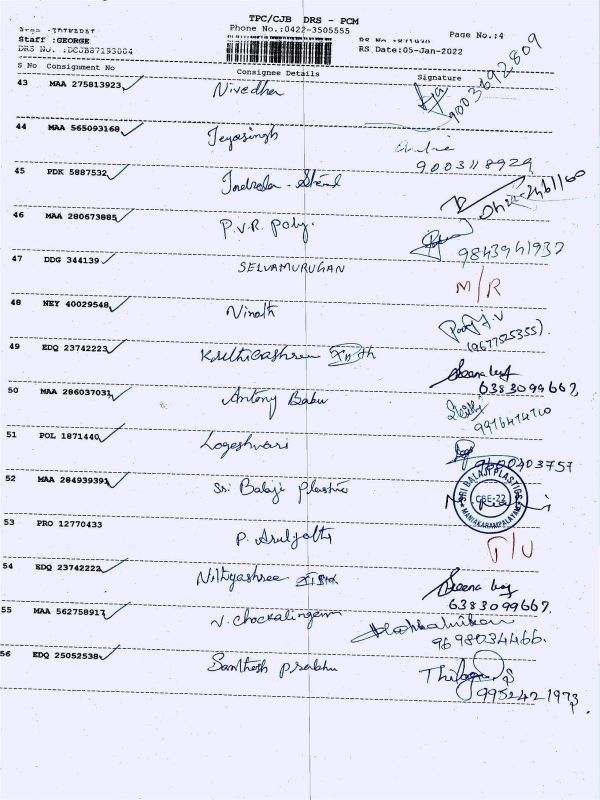 TPC/CJB DRS - PCM
Phone No.:0422-3505555
Page No.:4
Staff :GEORGE
DRS NO. :DCJB87193004
RS Date:05-Jan-2022
S No Consignment No Consignee Details Signature
43 MAA 275813923 Nivedha
9003692809
44 MAA 565093168 Jeyasingh
9003118929
45 PDK 5887532
46 MAA 280673885 P.V.R. Poly.
9843941932
47 DDG 344139 SELVAMURUGAN M/R
48 NEY 40029548 Vinoth
(9677525355).
49 EDQ 23742223
6383099667
50 MAA 286037031 Antony Babu
9976474700
51 POL 1871440 Logeshwari
9600403757
52 MAA 284939391 Sri Balaji Plastic
SRI BALAJI PLASTICS CBE-22 MANIAKARAMPALAYAM
53 PRO 12770433 P. Aruljothi
54 EDQ 23742222 Nithyashree
6383099667.
55 MAA 562758917 V. Chockalingam
9698034466.
56 EDQ 25052538 Santhosh Prabhu
9952421973